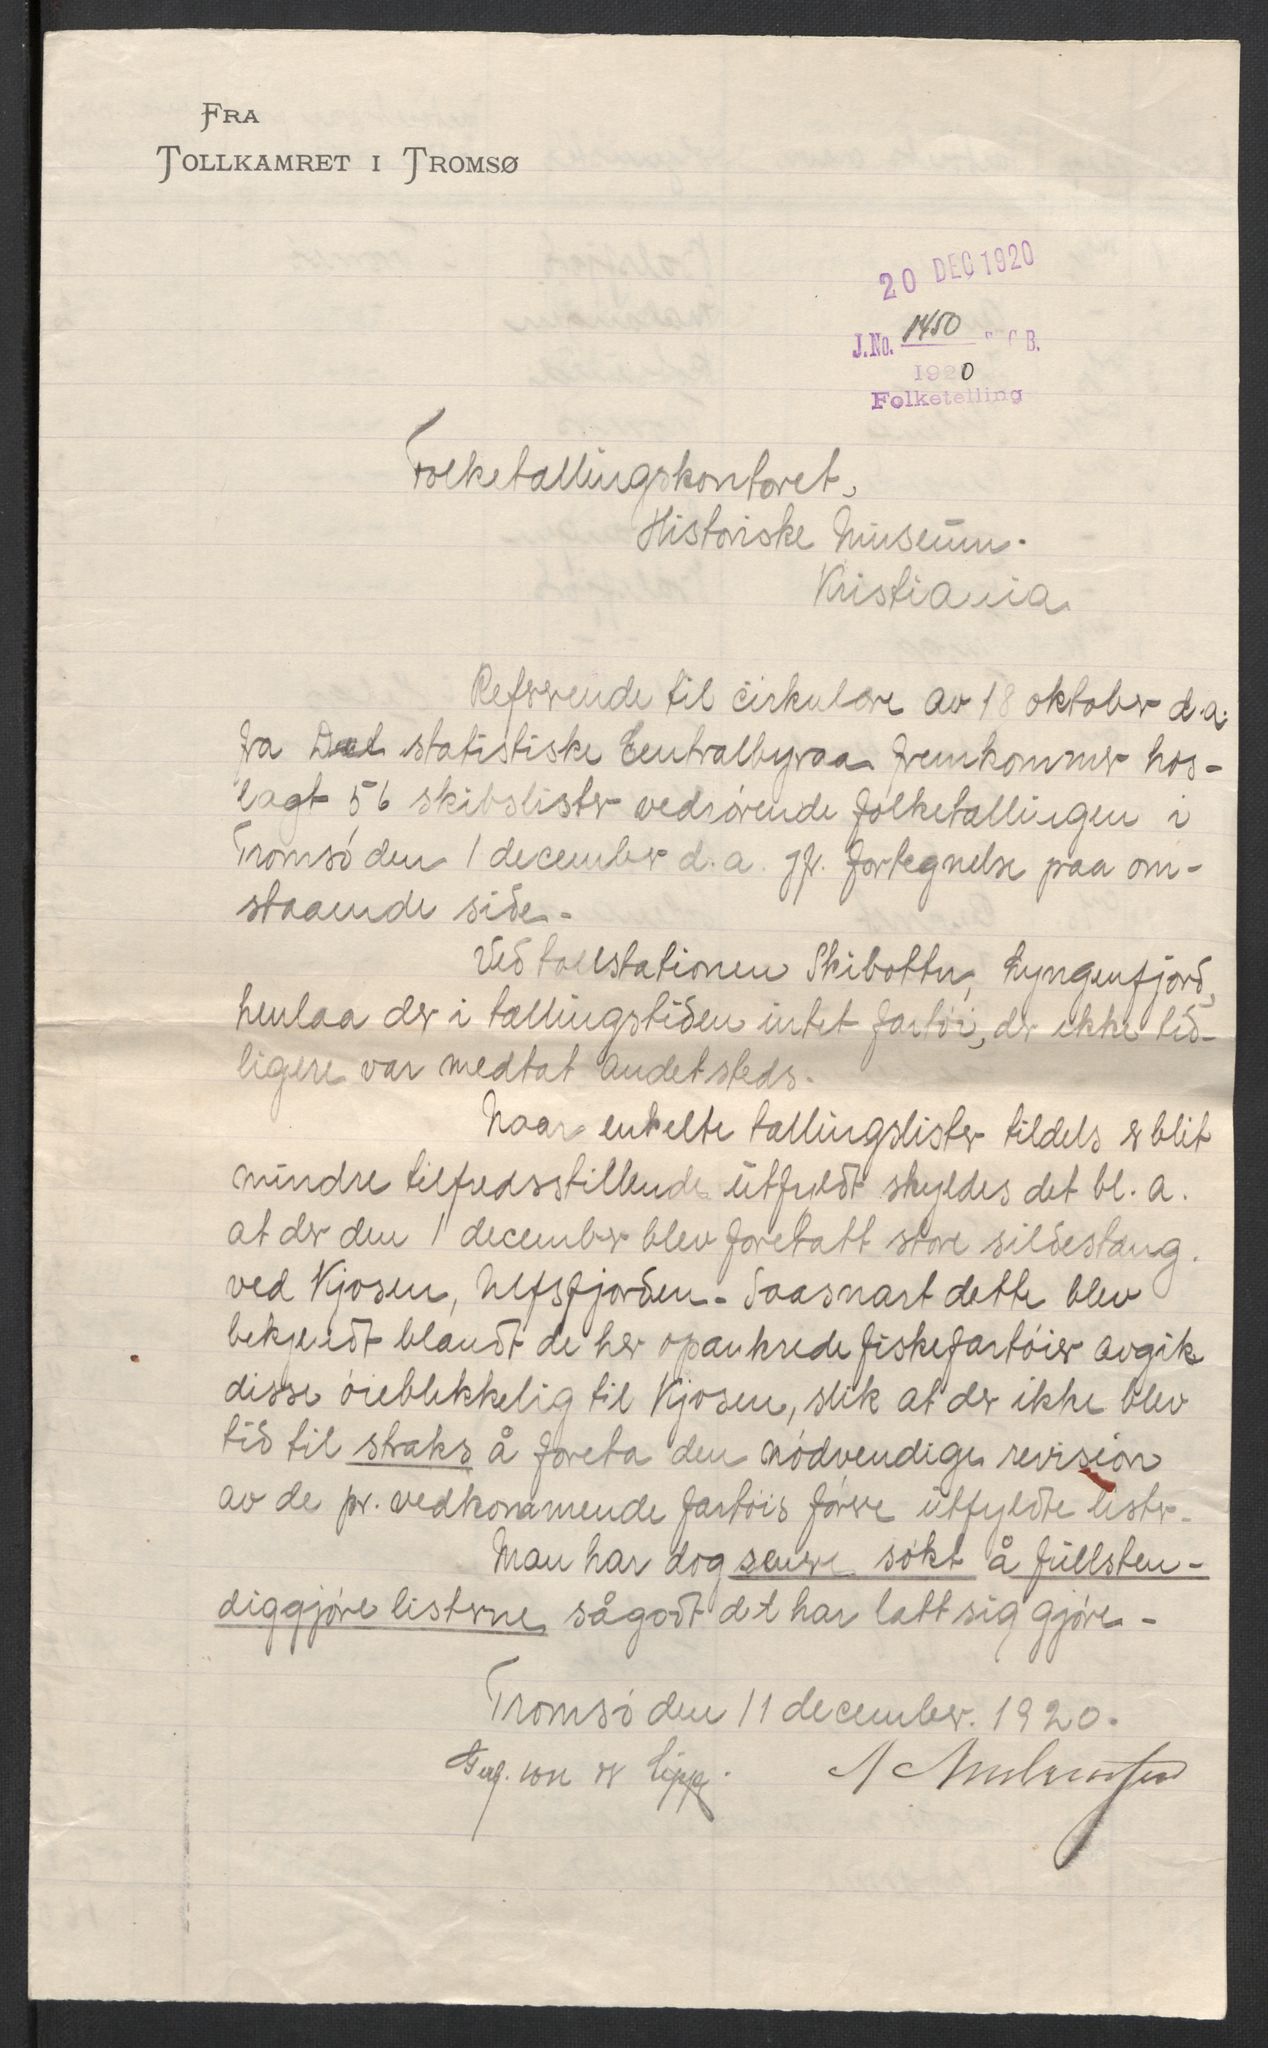 FRA
TOLLKAMRET I TROMSØ
20 DEC 1920
J.No. 1450 B.
1920
Folketelling
Folketællingskontoret,
Historiske Museum.
Kristiania
Refererende til cirkulære av 18 oktober d.a.
fra Det statistiske Centralbyraa fremkommer hos-
lagt 56 skibslister vedrørende folketællingen i
Tromsø den 1 december d.a. jfr. fortegnelse paa om-
staaende side.
Ved tollstationen Skibotten, Lyngenfjord,
henlaa der i tællingstiden intet fartøi, der ikke tid-
ligere var medtat andetsteds.
Naar enkelte tællingslister tildels er blit
mindre tilfredsstillende utfyldt skyldes det bl. a.
at der den 1 december blev foretatt store sildestæng.
ved Kjosen, Ulfsfjorden. Saasnart dette blev
bekjendt blandt de her opankrede fiskefartøier avgik
disse øieblikkelig til Kjosen, slik at der ikke blev
tid til straks å foreta den nødvendige revision
av de pr. vedkommende fartøis fører utfyldte lister.
Man har dog senere søkt å fullsten-
diggjøre listerne sågodt det har latt sig gjøre.-
Tromsø den 11 december. 1920.